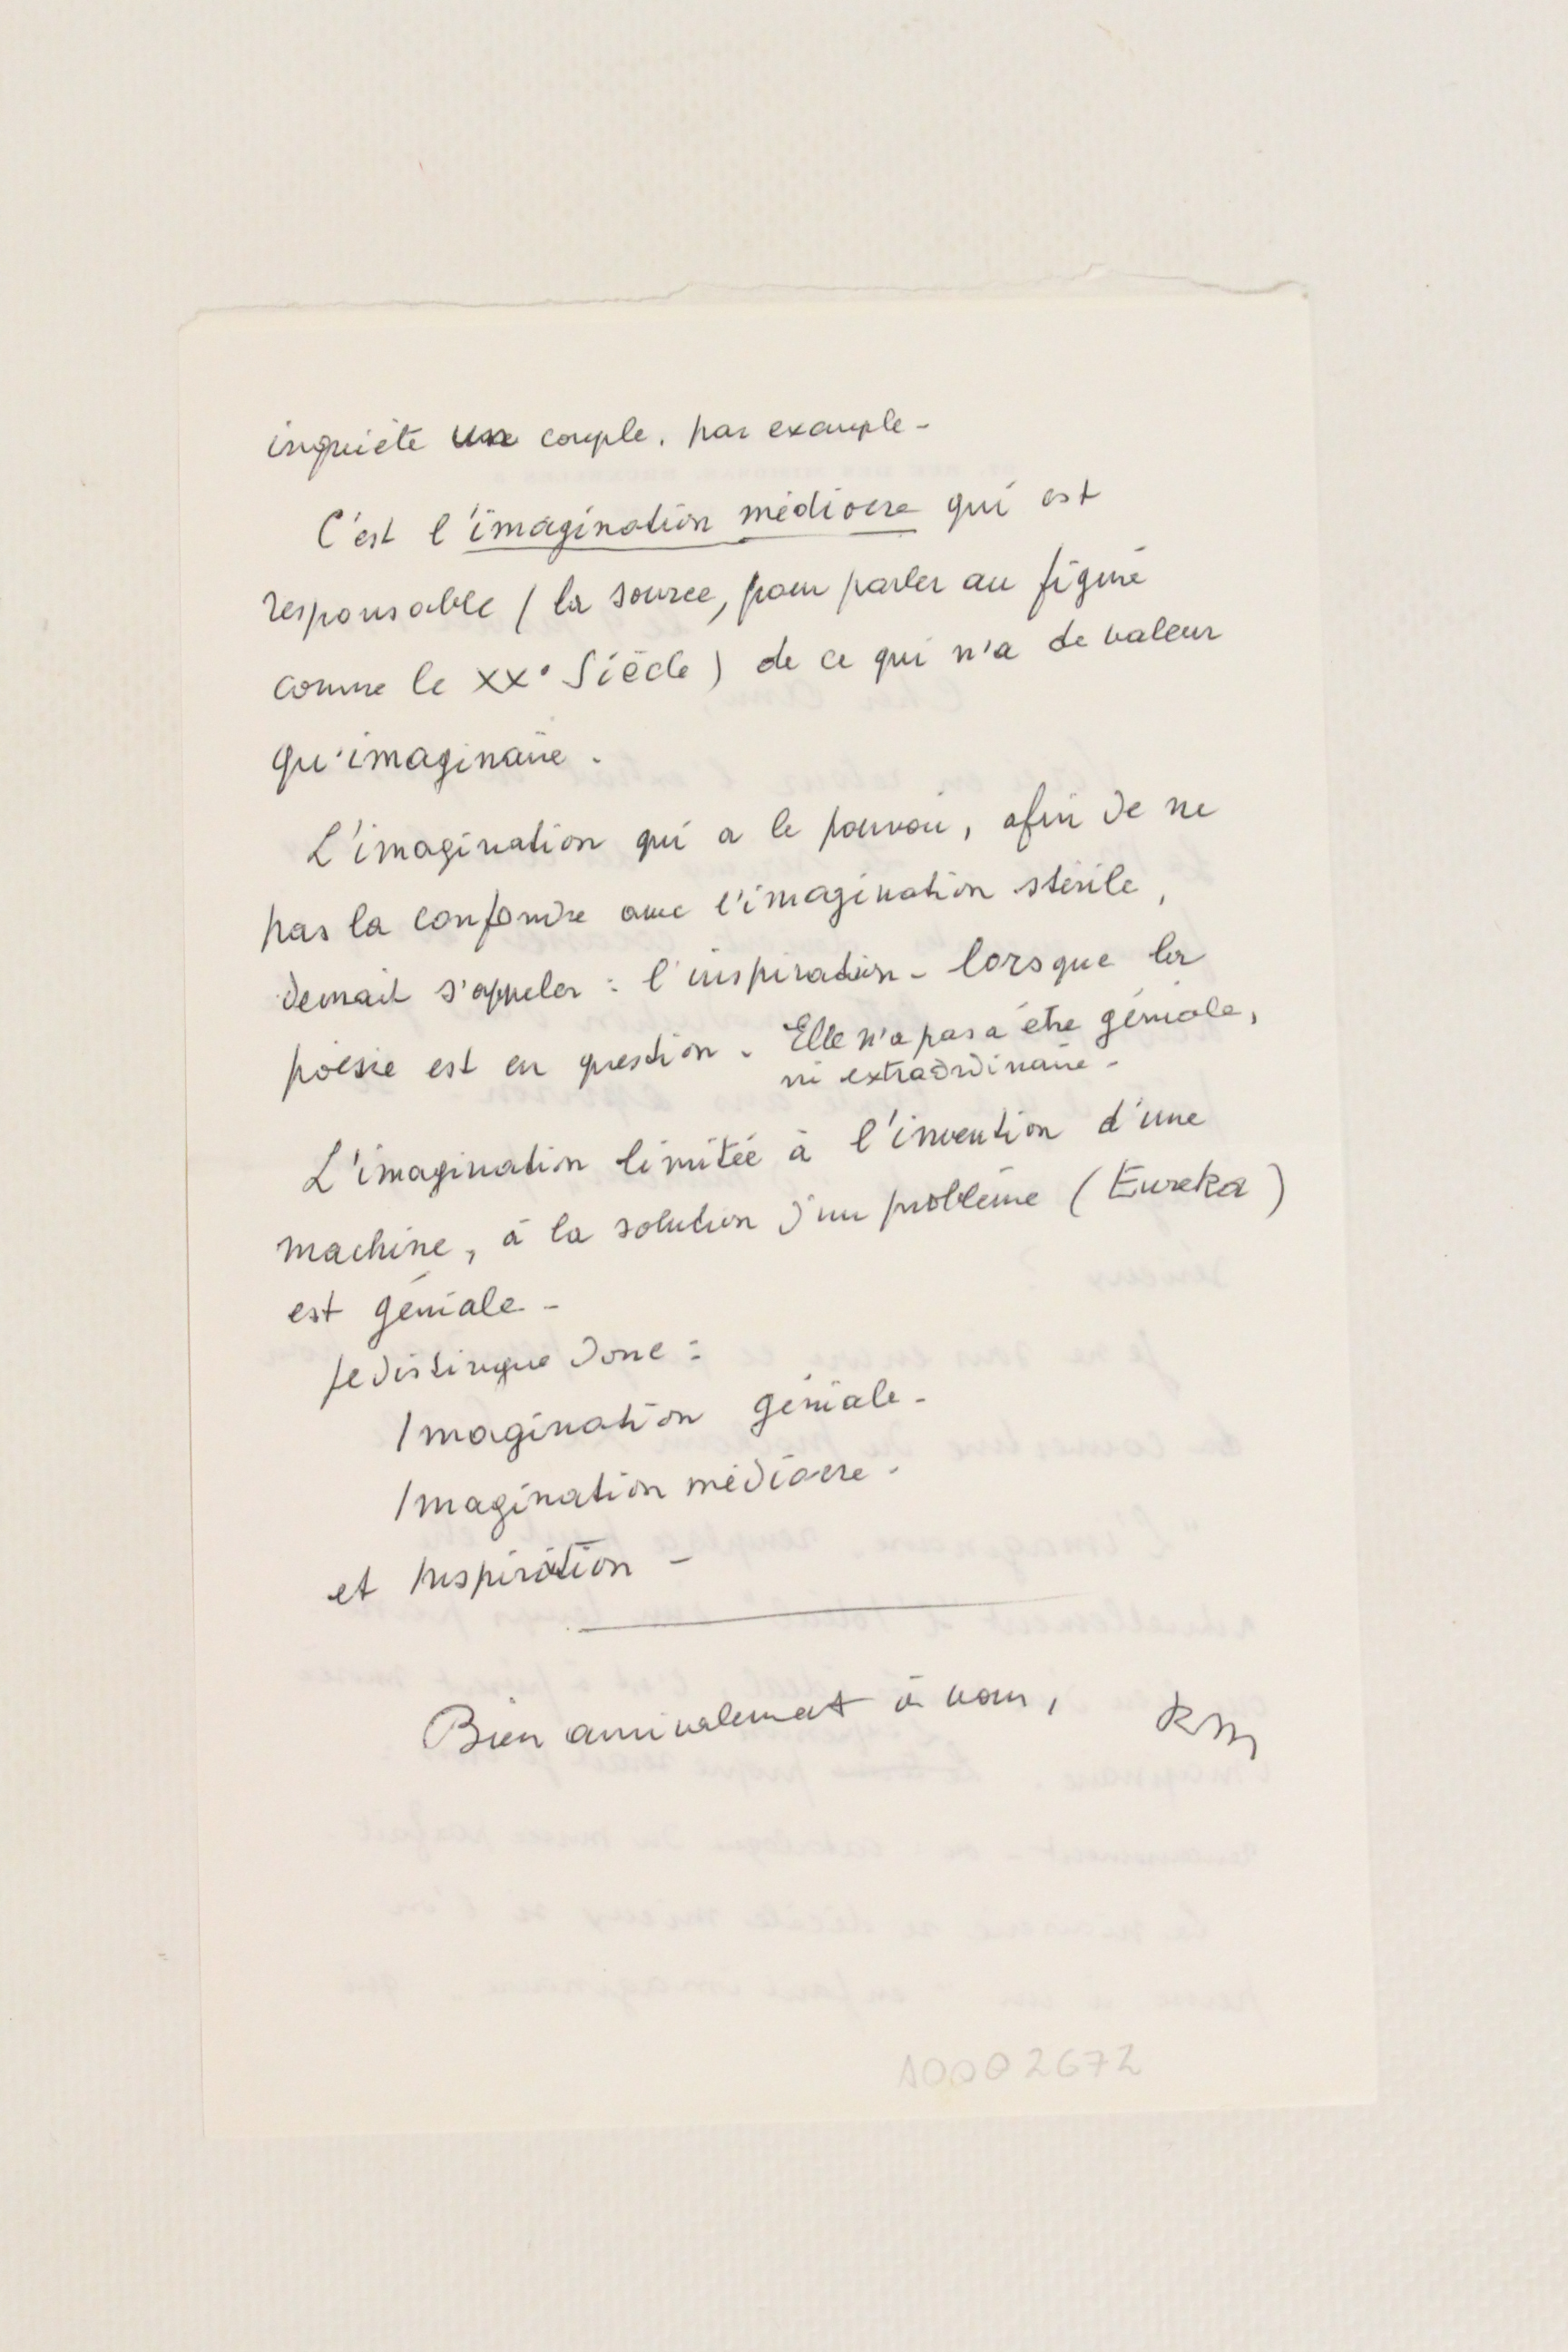 inquiète un couple, par example -
C'est l'imagination médiocre qui est
responsable (la source, pour parler au figuré
comme le XX° Siècle) de ce qui n'a de valeur
qu'imaginaire.
L'imagination qui a le pouvoir, afin de ne
pas la confondre avec l'imagination stérile,
devrait s'appeler : l'inspiration - lorsque la
poésie est en question. Elle n'a pas à être géniale,
ni extraordinaire -
L'imagination limitée à l'invention d'une
machine, à la solution d'un problème (Eureka)
est géniale -
Je distingue donc :
Imagination géniale -
Imagination médiocre -
et Inspiration -
Bien amicalement à vous,
RM
A0002672